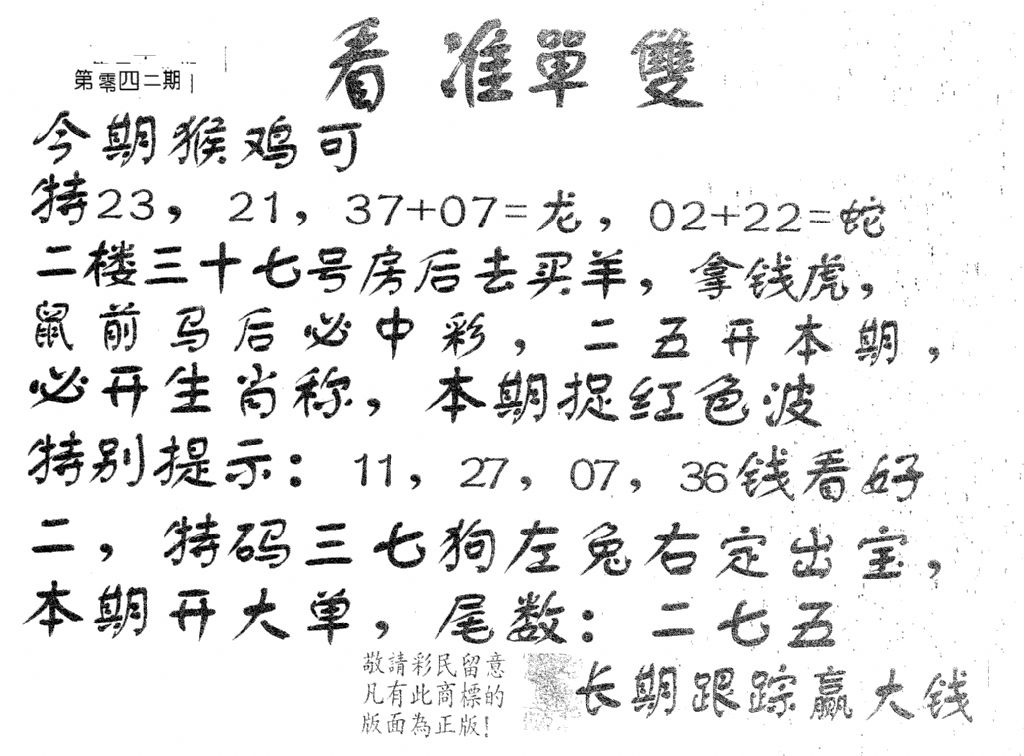 看准單雙
第零四二期
今期猴鸡可
特23，21，37+07=龙，02+22=蛇
二楼三十七号房后去买羊，拿钱虎，
鼠前马后必中彩，二五开本期，
必开生肖称，本期捉红色波
特别提示：11，27，07，36钱看好
二，特码三七狗左兔右定出宝，
本期开大单，尾数：二七五
敬請彩民留意
凡有此商標的
版面為正版！
长期跟踪赢大钱